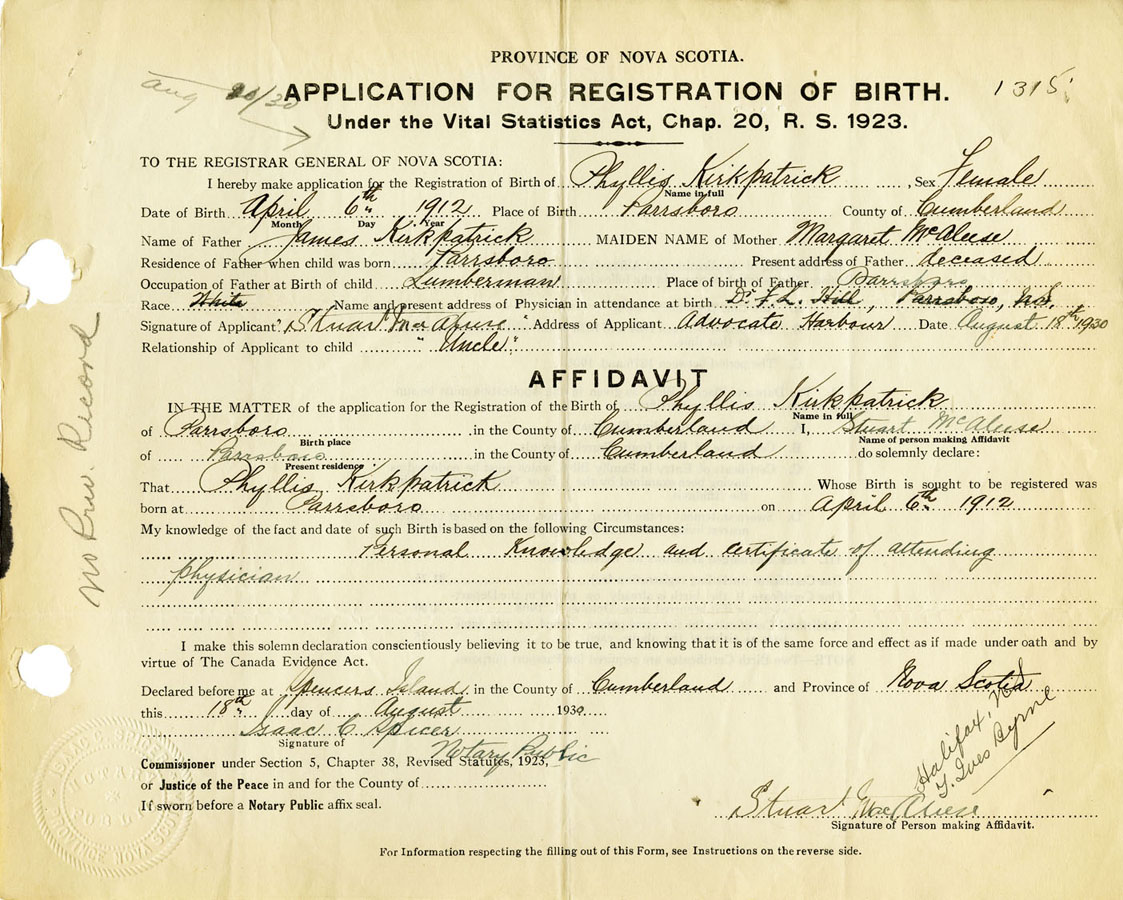 PROVINCE OF NOVA SCOTIA.
aug 20/30
APPLICATION FOR REGISTRATION OF BIRTH.
1315
Under the Vital Statistics Act, Chap. 20, R. S. 1923.
TO THE REGISTRAR GENERAL OF NOVA SCOTIA:
I hereby make application for the Registration of Birth of Phyllis Kirkpatrick, Sex Female
Name in full
Date of Birth April 6th 1912 Place of Birth Parrsboro County of Cumberland
Month Day Year
Name of Father James Kirkpatrick MAIDEN NAME of Mother Margaret McAleese
Residence of Father when child was born Parrsboro Present address of Father deceased
Occupation of Father at Birth of child Lumberman Place of birth of Father Parrsboro
Race White Name and present address of Physician in attendance at birth Dr. F. L. Hill, Parrsboro, N.S.
Signature of Applicant "Stuart MacAleese" Address of Applicant Advocate Harbour Date August 18th 1930
Relationship of Applicant to child "Uncle"
AFFIDAVIT
IN THE MATTER of the application for the Registration of the Birth of Phyllis Kirkpatrick
Name in full
of Parrsboro in the County of Cumberland I, Stuart McAleese
Birth place Name of person making Affidavit
of Parrsboro in the County of Cumberland do solemnly declare:
Present residence
That Phyllis Kirkpatrick Whose Birth is sought to be registered was
born at Parrsboro on April 6th 1912
My knowledge of the fact and date of such Birth is based on the following Circumstances:
Personal Knowledge and certificate of attending
physician
I make this solemn declaration conscientiously believing it to be true, and knowing that it is of the same force and effect as if made under oath and by
virtue of The Canada Evidence Act.
Declared before me at Spencers Island in the County of Cumberland and Province of Nova Scotia
this 18th day of August 1930
Isaac C Spicer
Signature of Notary Public
Commissioner under Section 5, Chapter 38, Revised Statutes, 1923,
or Justice of the Peace in and for the County of
If sworn before a Notary Public affix seal.
Halifax, N S
T. Ives Byrne
Stuart MacAleese
Signature of Person making Affidavit.
For Information respecting the filling out of this Form, see Instructions on the reverse side.
No Prev. Record
NOTARY
PUBLIC
PROVINCE NOVA SCOTIA